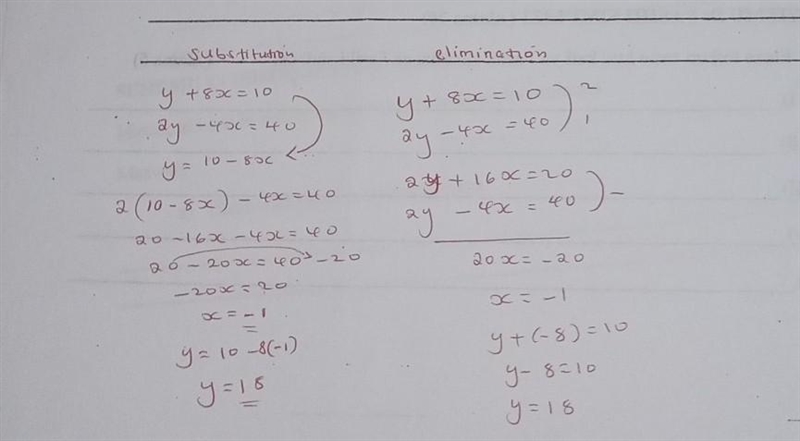 substitution
y + 8x = 10
2y - 4x = 40
y = 10 - 8x
2(10 - 8x) - 4x = 40
20 - 16x - 4x = 40
20 - 20x = 40 - 20
-20x = 20
x = -1
y = 10 - 8(-1)
y = 18
elimination
y + 8x = 10 ) 2
2y - 4x = 40 ) 1
2y + 16x = 20
2y - 4x = 40 ) -
20x = -20
x = -1
y + (-8) = 10
y - 8 = 10
y = 18